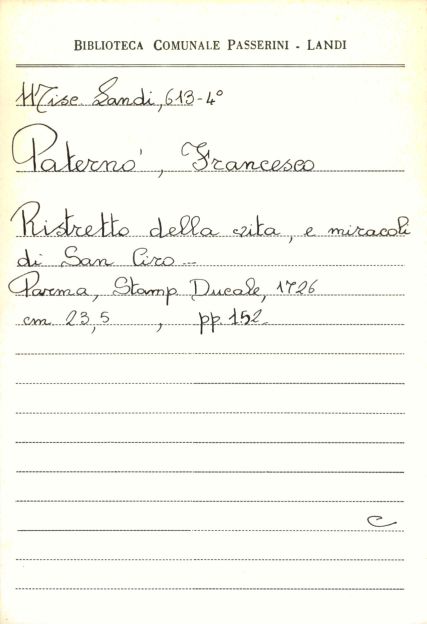 BIBLIOTECA COMUNALE PASSERINI - LANDI
Misc. Landi, 613-4°
Paterno', Francesco
Ristretto della vita, e miracoli
di San Ciro...
Parma, Stamp. Ducale, 1726
cm. 23,5 , pp. 152.
C